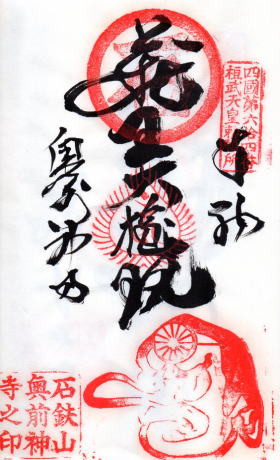 四國第六拾四番
桓武天皇勅願所
奉納
蔵王大権現
石鉄山
奥前神
寺之印